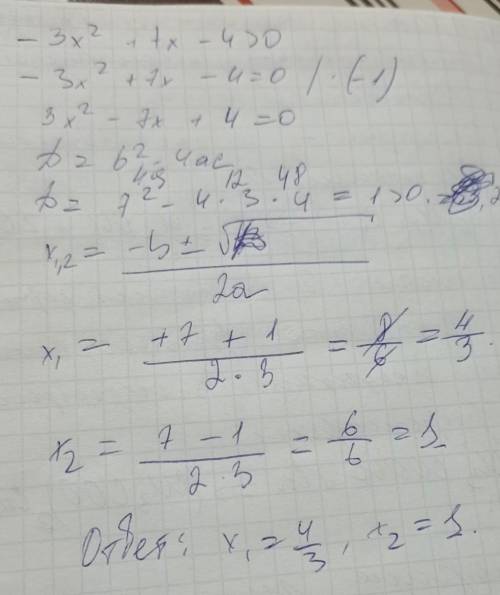 - 3x² + 7x - 4 > 0
- 3x² + 7x - 4 = 0 / · (-1)
3x² - 7x + 4 = 0
D = b² - 4ac
49 12 48
D = 7² - 4 · 3 · 4 = 1 > 0.
x₁,₂ = (-b ± √) / 2a
x₁ = (+7 + 1) / (2 · 3) = 8/6 = 4/3.
x₂ = (7 - 1) / (2 · 3) = 6/6 = 1
Ответ: x₁ = 4/3, x₂ = 1.